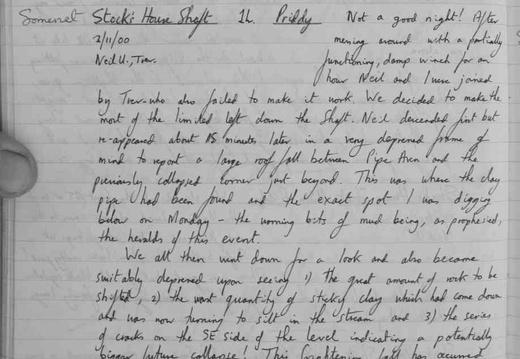 Somerset Stock's House Shaft 1L. Priddy Not a good night! After
2/11/00 messing around with a partially
Neil U., Trev. functioning, damp winch for an
hour Neil and I were joined
by Trev who also failed to make it work. We decided to make the
most of the limited left down the Shaft. Neil descended first but
re-appeared about 15 minutes later in a very depressed frame of
mind to report a large roof fall between Pipe Aven and the
previously collapsed corner just beyond. This was where the clay
pipe had been found and the exact spot I was digging
below on Monday - the worning bits of mud being, as prophesied,
the heralds of this event.
We all then went down for a look and also became
suitably depressed upon seeing 1) the great amount of rock to be
shifted, 2) the vast quantity of sticky clay which had come down
and was now turning to silt in the stream and 3) the series
of cracks on the SE side of the level indicating a potentially
bigger future collapse! This frightening fall has occurred